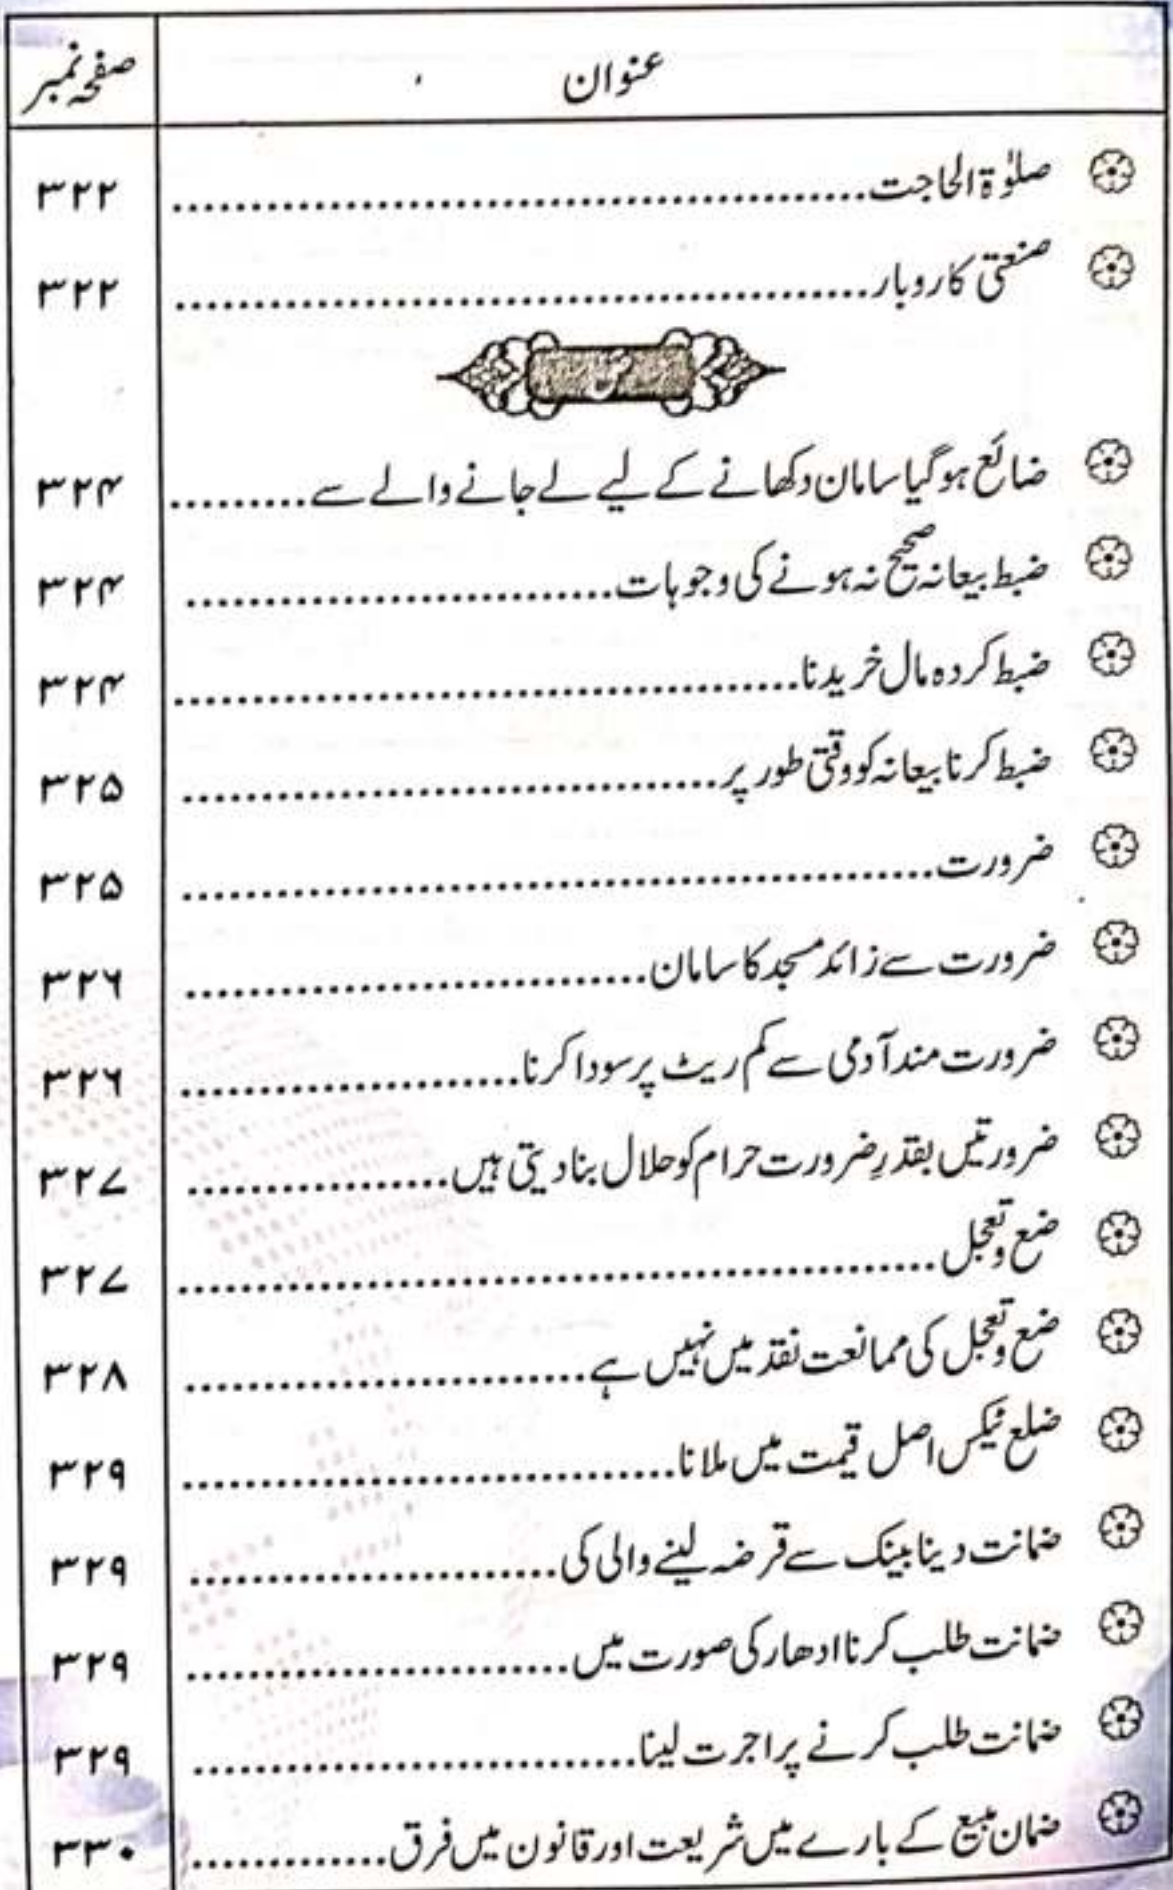 عنوان صفحہ نمبر
صلوٰۃ الحاجت ۳۲۲
صنعتی کاروبار ۳۲۲
ض
ضائع ہوگیا سامان دکھانے کے لیے لے جانے والے سے ۳۲۴
ضبط بیعانہ صحیح نہ ہونے کی وجوہات ۳۲۴
ضبط کردہ مال خریدنا ۳۲۴
ضبط کرنا بیعانہ کو وقتی طور پر ۳۲۵
ضرورت ۳۲۵
ضرورت سے زائد مسجد کا سامان ۳۲۶
ضرورت مند آدمی سے کم ریٹ پر سودا کرنا ۳۲۶
ضرورتیں بقدرِ ضرورت حرام کو حلال بنا دیتی ہیں ۳۲۷
ضع وتعجل ۳۲۷
ضع وتعجل کی ممانعت نقد میں نہیں ہے ۳۲۸
ضلع ٹیکس اصل قیمت میں ملانا ۳۲۹
ضمانت دینا بینک سے قرضہ لینے والی کی ۳۲۹
ضمانت طلب کرنا ادھار کی صورت میں ۳۲۹
ضمانت طلب کرنے پر اجرت لینا ۳۲۹
ضمان مبیع کے بارے میں شریعت اور قانون میں فرق ۳۳۰